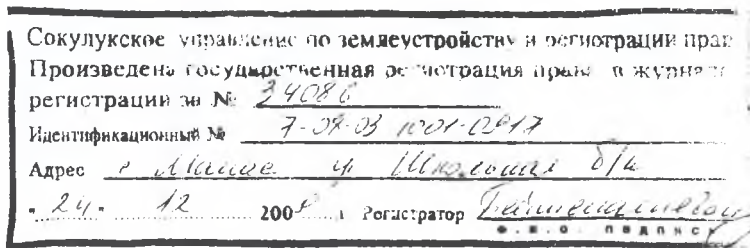 Сокулукское управление по землеустройству и регистрации прав
Произведена государственная регистрация права в журнале
регистрации за № 34086
Идентификационный № 7-08-03
Адрес с. ул. Школьная б/н
" 24 " 12 200 г. Регистратор
Ф.И.О. подпись